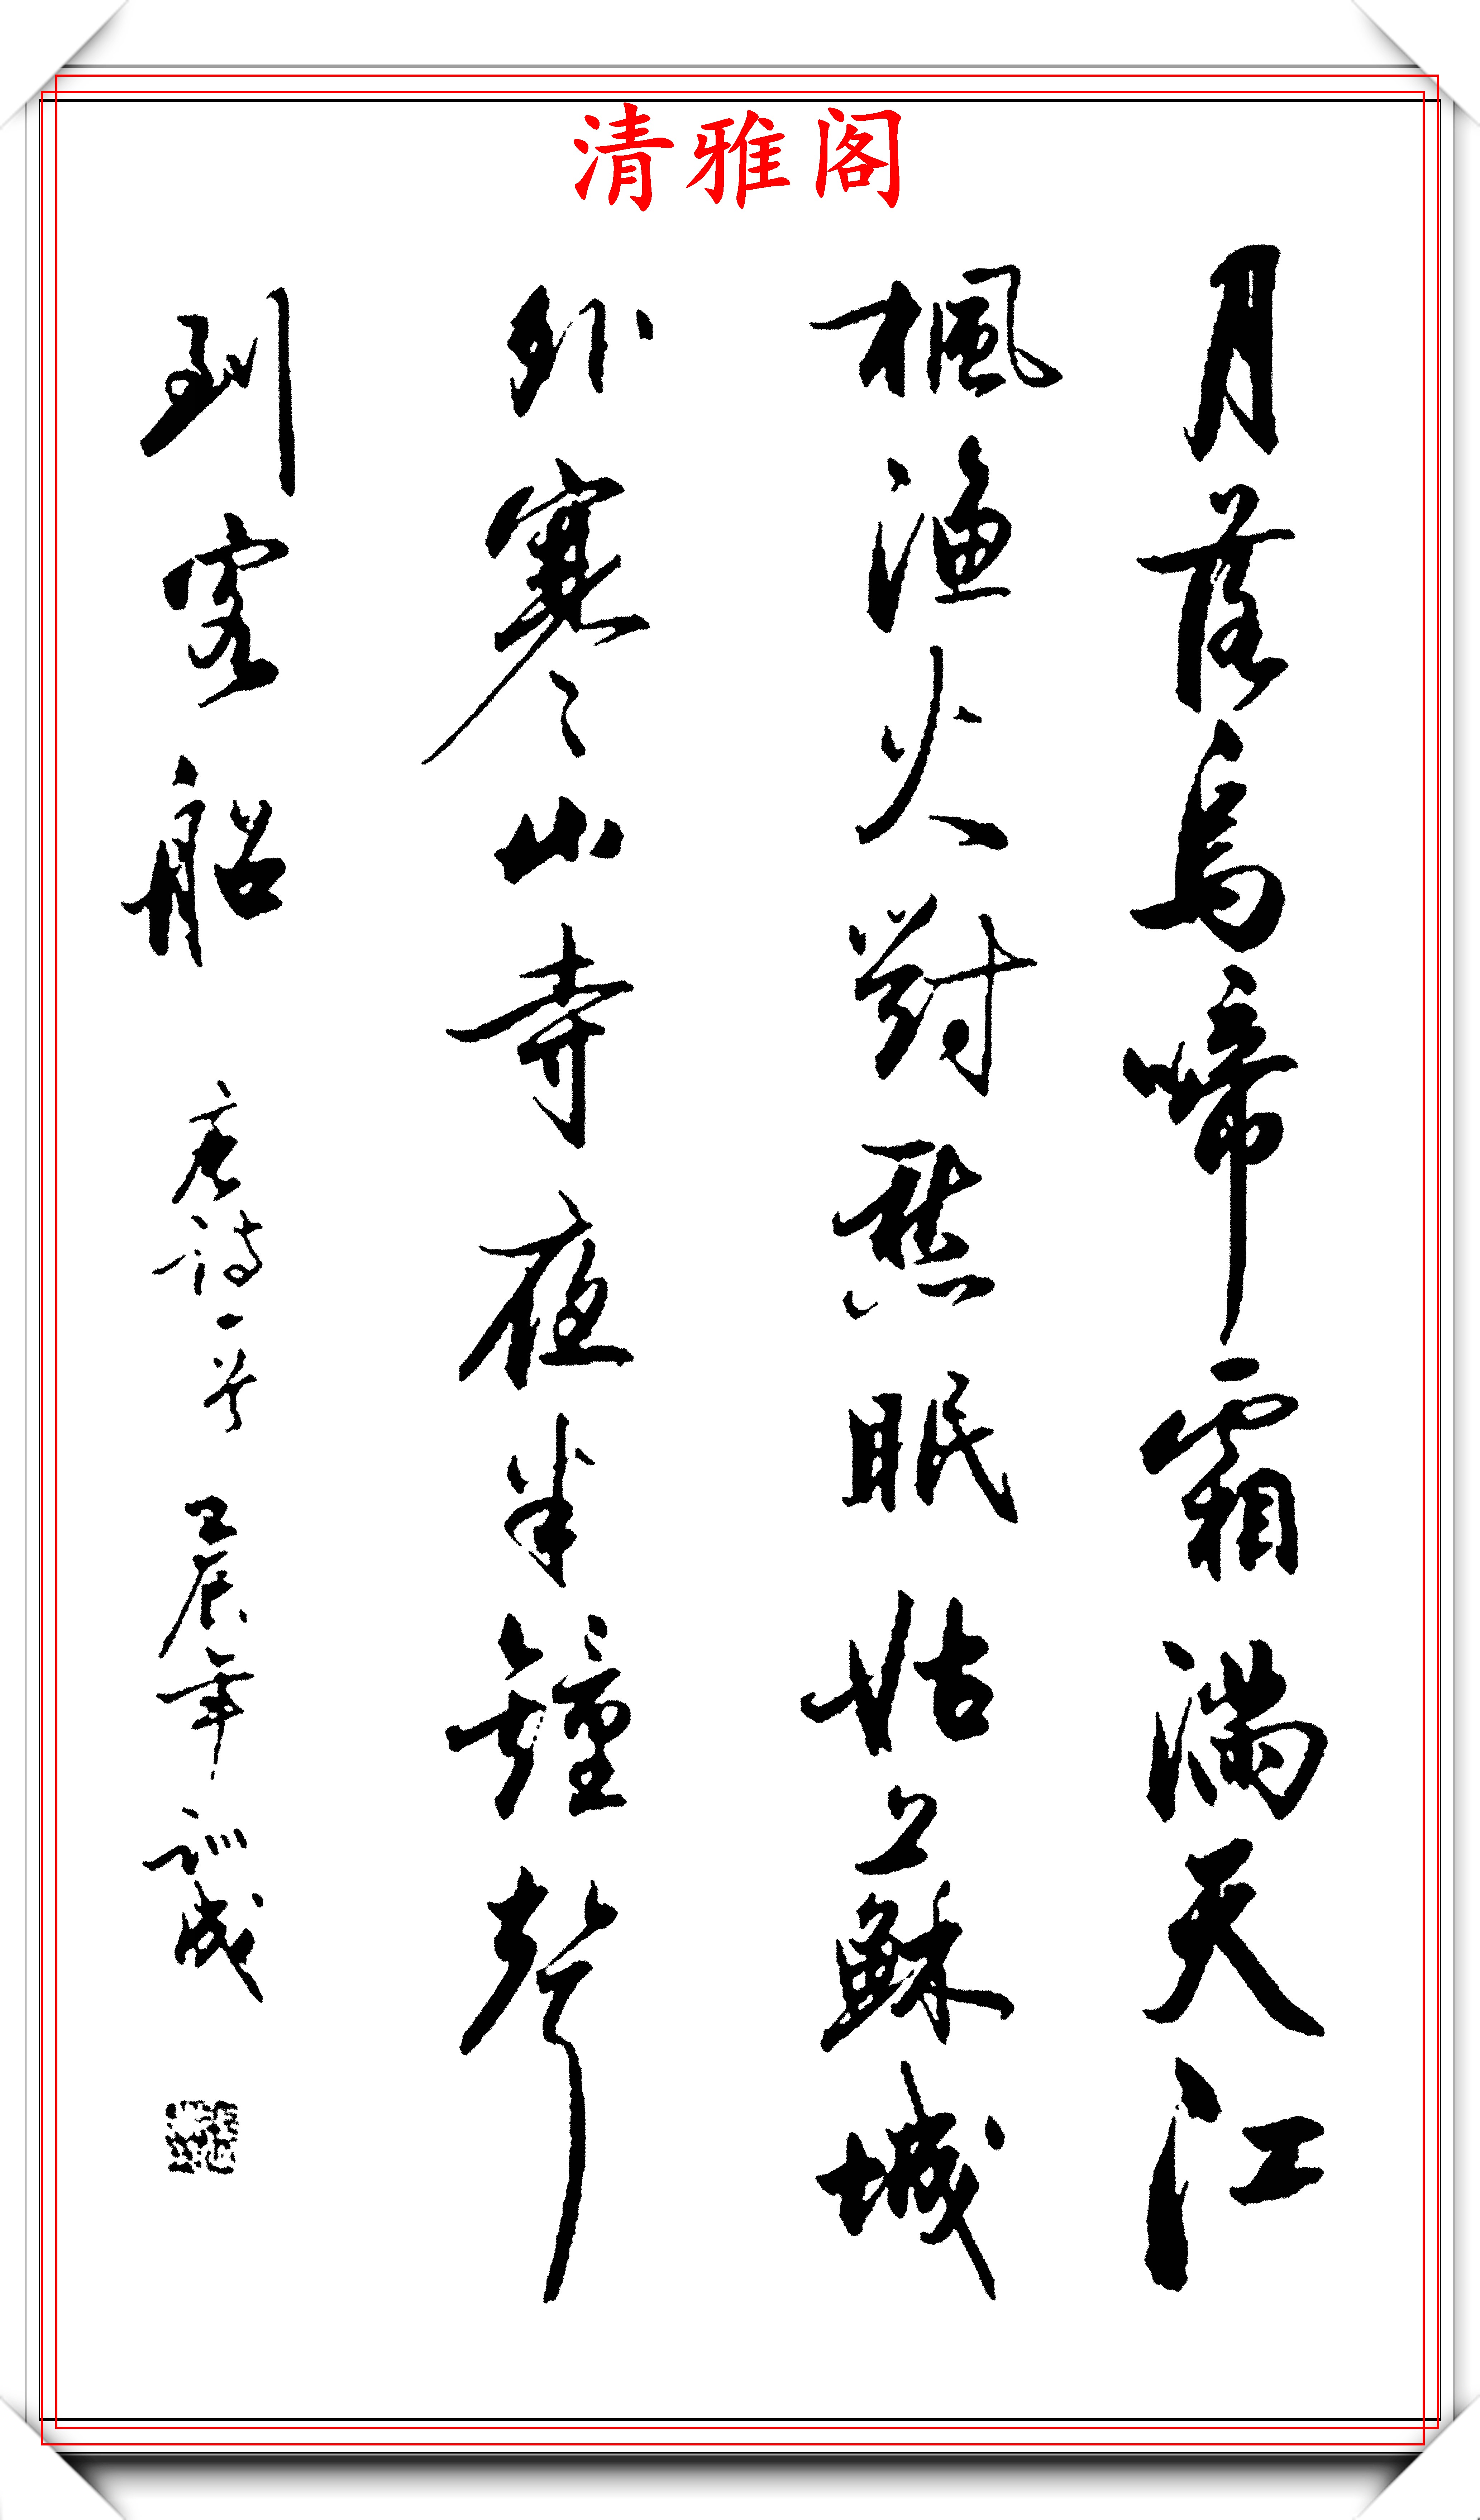 清雅阁
月落烏啼霜滿天江
楓漁火對愁眠姑蘇城
外寒山寺夜半鐘聲
到客船 唐詩一首 壬辰年